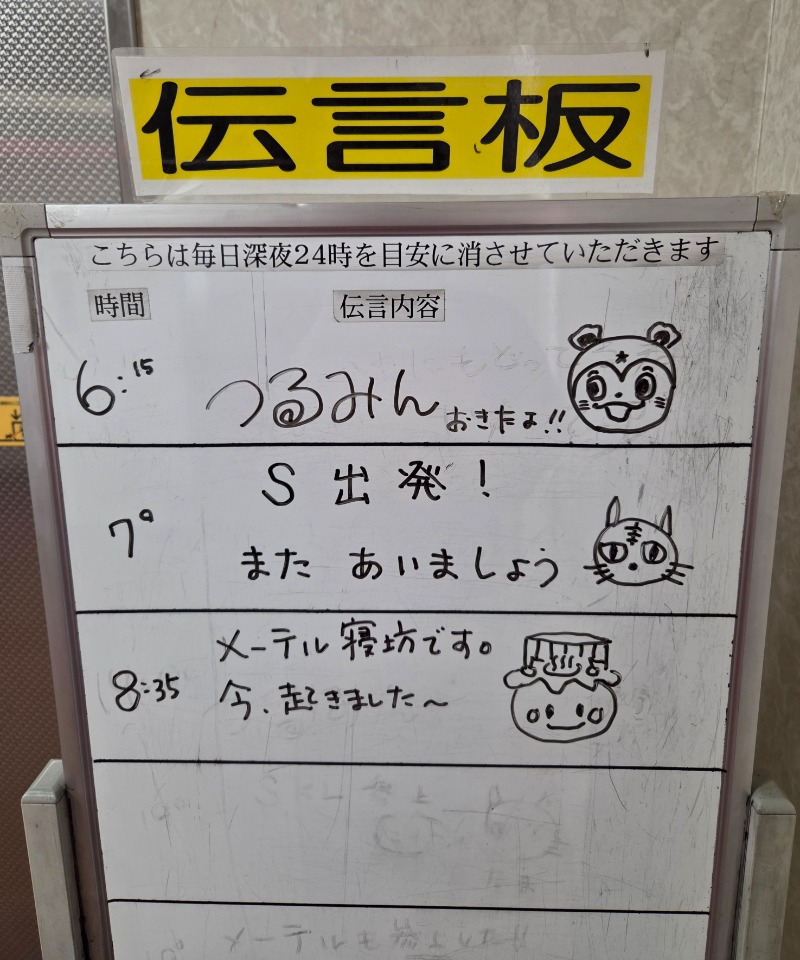 伝言板
こちらは毎日深夜24時を目安に消させていただきます
時間 伝言内容
6:15 つるみん おきたよ!!
S 出発!
7° また あいましょう
メーテル寝坊です。
8:35 今、起きました〜